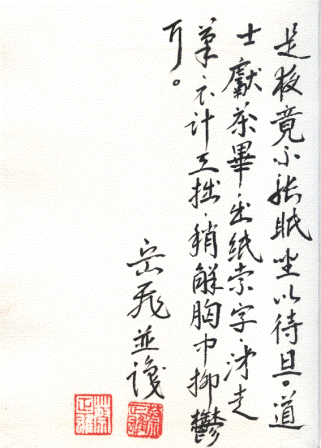 是夜竟不能眠坐以待旦。道
士獻茶畢、出纸索字、涕走
筆、不计工拙、稍解胸中抑鬱
耳。
岳飛並識